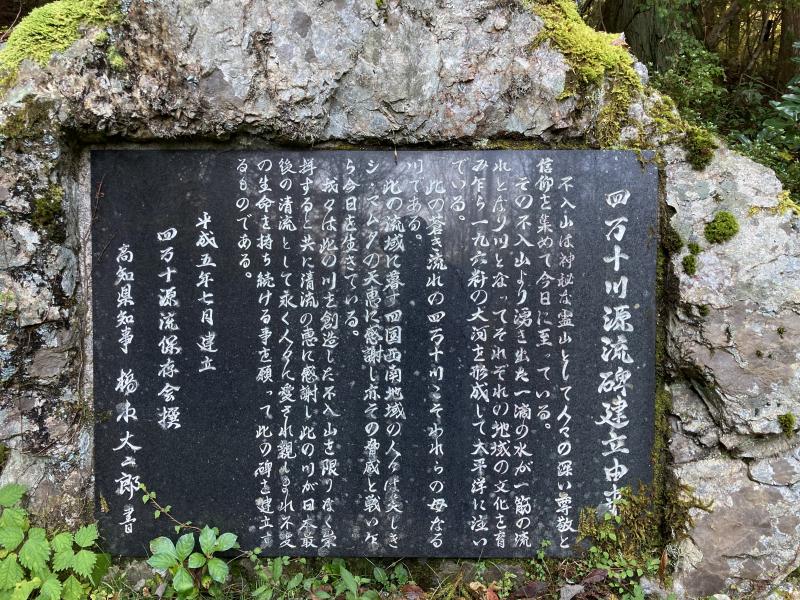 四万十川源流碑建立由来
不入山は神秘な霊山として人々の深い尊敬と
信仰を集めて今日に至っている。
その不入山より湧き出た一滴の水が一筋の流
れとなり川となってそれぞれの地域の文化を育
み乍ら一九六粁の大河を形成して太平洋に注い
でいる。
此の蒼き流れの四万十川こそわれらの母なる
川である。
此の流域に暮す四国西南地域の人々は美しき
シ・アムダの天恵に感謝し亦その脅威と戦い乍
ら今日を生きている。
我々は此の川を創造した不入山を限りなく崇
拝すると共に清流の恵に感謝し此の川が日本最
後の清流として永く人々に愛され親しまれ不変
の生命を持ち続ける事を願って此の碑を建立す
るものである。
平成五年七月建立
四万十源流保存会撰
高知県知事 橋本大二郎書